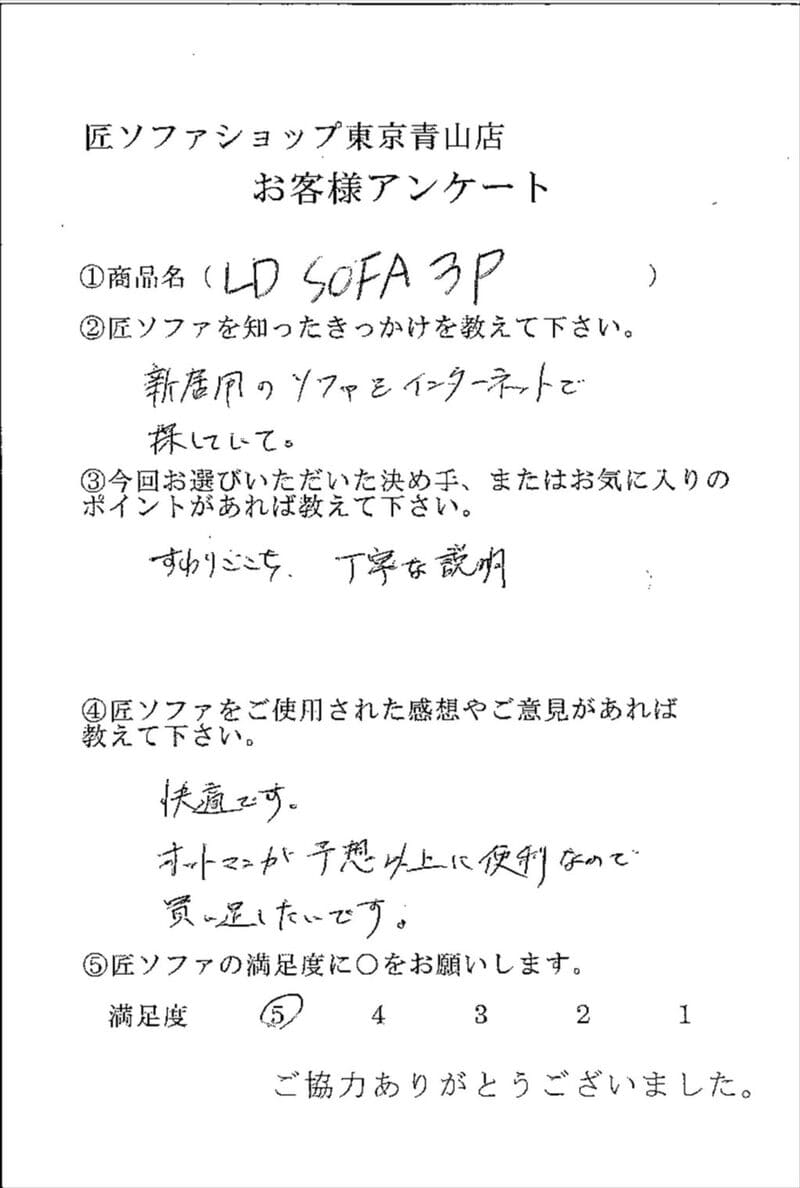 匠ソファショップ東京青山店
お客様アンケート
①商品名（LD SOFA 3P）
②匠ソファを知ったきっかけを教えて下さい。
新居用のソファをインターネットで
探していて。
③今回お選びいただいた決め手、またはお気に入りの
ポイントがあれば教えて下さい。
すわりごこち、丁寧な説明
④匠ソファをご使用された感想やご意見があれば
教えて下さい。
快適です。
オットマンが予想以上に便利なので
買い足したいです。
⑤匠ソファの満足度に○をお願いします。
満足度 5 4 3 2 1
ご協力ありがとうございました。